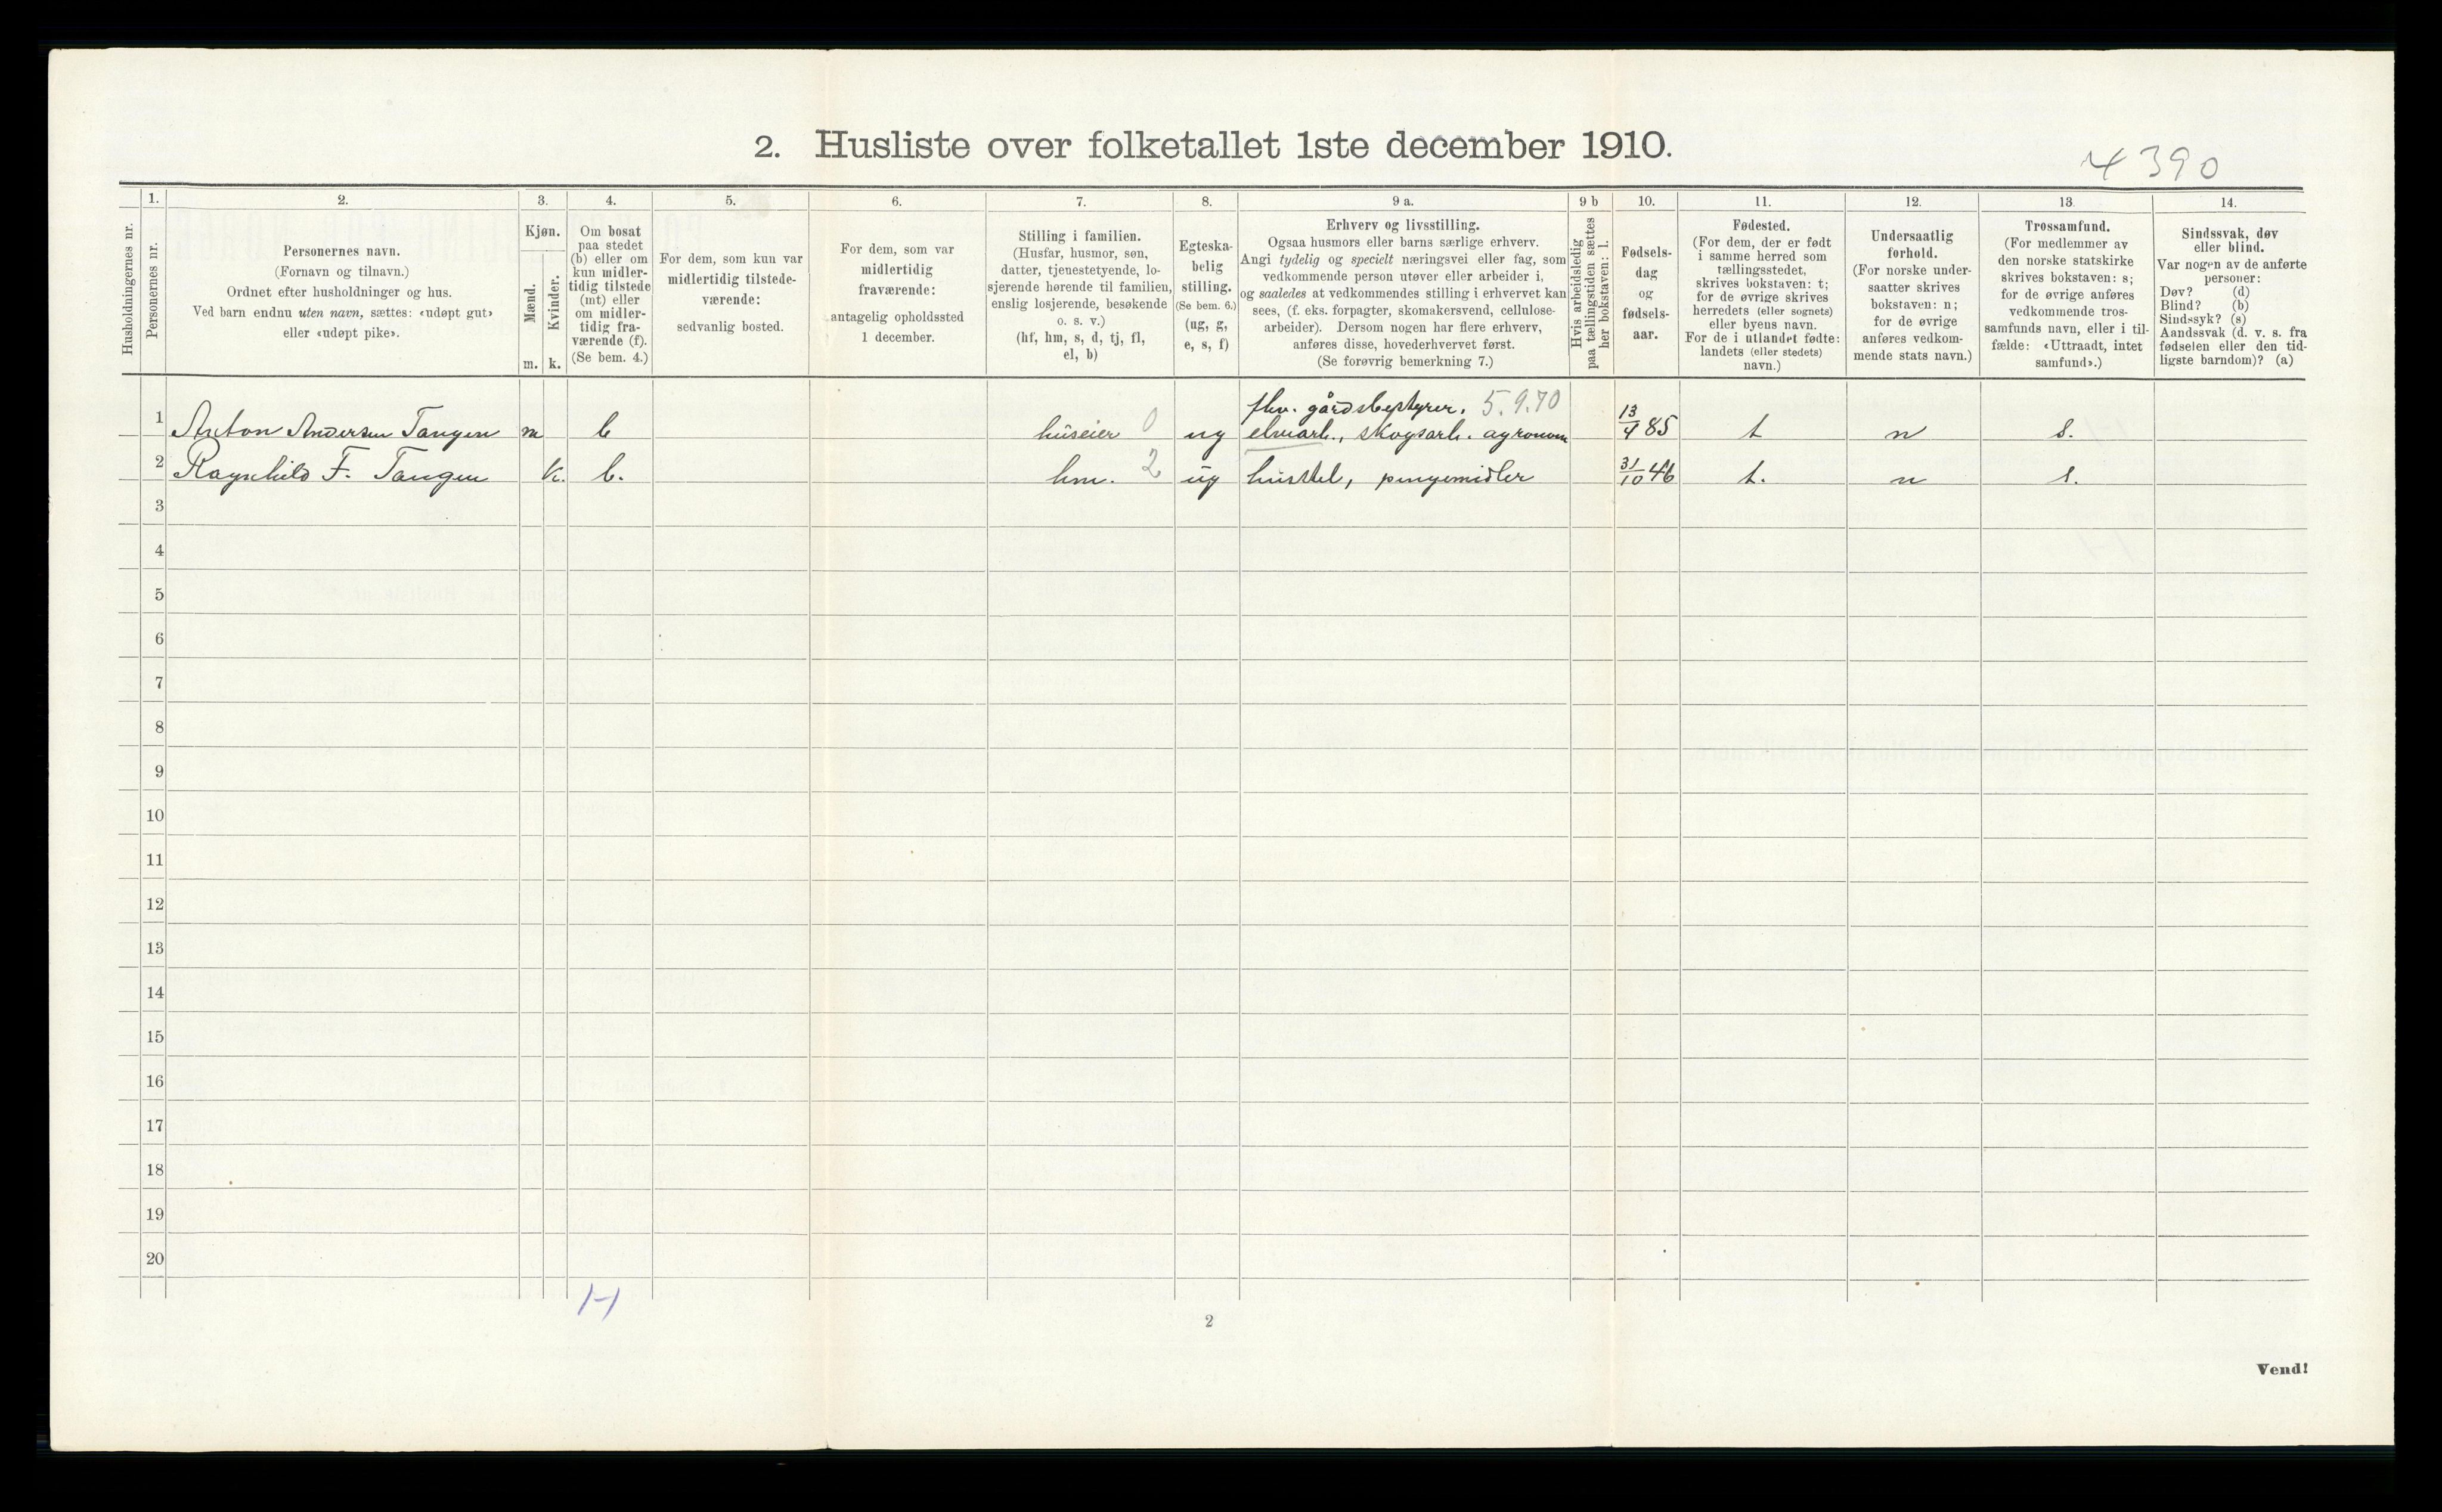 2. Husliste over folketallet 1ste december 1910.
4390
Husholdningernes nr.
1.
Personernes nr.
2.
Personernes navn.
(Fornavn og tilnavn.)
Ordnet efter husholdninger og hus.
Ved barn endnu uten navn, sættes: «udøpt gut»
eller «udøpt pike».
3.
Kjøn.
Mænd.
Kvinder.
m. k.
4.
Om bosat
paa stedet
(b) eller om
kun midler-
tidig tilstede
(mt) eller
om midler-
tidig fra-
værende (f).
(Se bem. 4.)
5.
For dem, som kun var
midlertidig tilstede-
værende:
sedvanlig bosted.
6.
For dem, som var
midlertidig
fraværende:
antagelig opholdssted
1 december.
7.
Stilling i familien.
(Husfar, husmor, søn,
datter, tjenestetyende, lo-
sjerende hørende til familien,
enslig losjerende, besøkende
o. s. v.)
(hf, hm, s, d, tj, fl,
el, b)
8.
Egteska-
belig
stilling.
(Se bem. 6.)
(ug, g,
e, s, f)
9 a.
Erhverv og livsstilling.
Ogsaa husmors eller barns særlige erhverv.
Angi tydelig og specielt næringsvei eller fag, som
vedkommende person utøver eller arbeider i,
og saaledes at vedkommendes stilling i erhvervet kan
sees, (f. eks. forpagter, skomakersvend, cellulose-
arbeider). Dersom nogen har flere erhverv,
anføres disse, hovederhvervet først.
(Se forøvrig bemerkning 7.)
9 b
Hvis arbeidsledig
paa tællingstiden sættes
her bokstaven: l.
10.
Fødsels-
dag
og
fødsels-
aar.
11.
Fødested.
(For dem, der er født
i samme herred som
tællingsstedet,
skrives bokstaven: t;
for de øvrige skrives
herredets (eller sognets)
eller byens navn.
For de i utlandet fødte:
landets (eller stedets)
navn.)
12.
Undersaatlig
forhold.
(For norske under-
saatter skrives
bokstaven: n;
for de øvrige
anføres vedkom-
mende stats navn.)
13.
Trossamfund.
(For medlemmer av
den norske statskirke
skrives bokstaven: s;
for de øvrige anføres
vedkommende tros-
samfunds navn, eller i til-
fælde: «Uttraadt, intet
samfund».)
14.
Sindssvak, døv
eller blind.
Var nogen av de anførte
personer:
Døv? (d)
Blind? (b)
Sindssyk? (s)
Aandssvak (d. v. s. fra
fødselen eller den tid-
ligste barndom)? (a)
fhv. gårdsbestyrer. 5.9.70
1 Anton Andersen Tangen m b huseier 0 ug elvearb., skogsarb. agronom 13/4 85 t n s.
2 Ragnhild F. Tangen k. b. hm. 2 ug husstel, pengemidler 31/10 46 t. n s.
3
4
5
6
7
8
9
10
11
12
13
14
15
16
17
18
19
20
2
Vend!